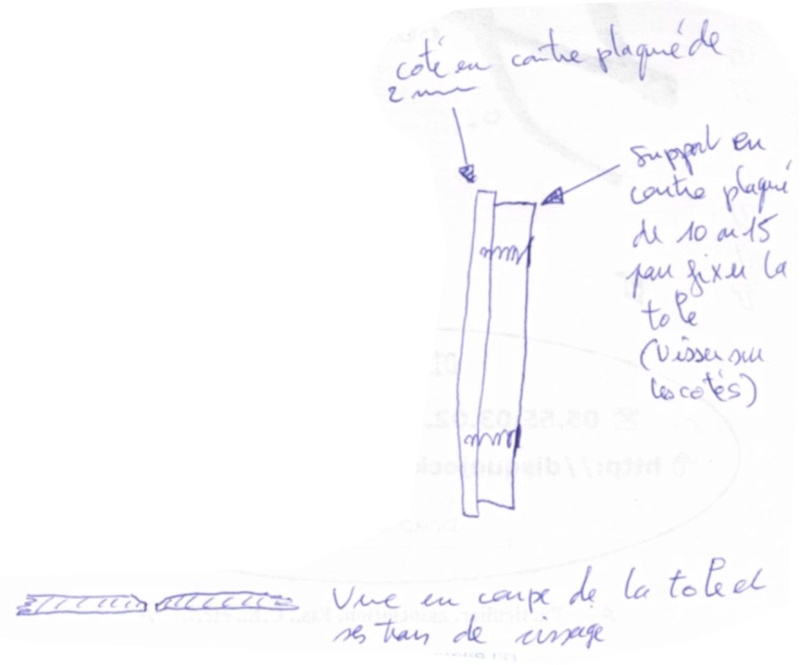 coté en contre plaqué de
2 mm
support en
contre plaqué
de 10 ou 15
pour fixer la
tole
(Visser sur
les cotés)
Vue en coupe de la tole et
ses trous de vissage
05.55.03.02.
http://disquejock